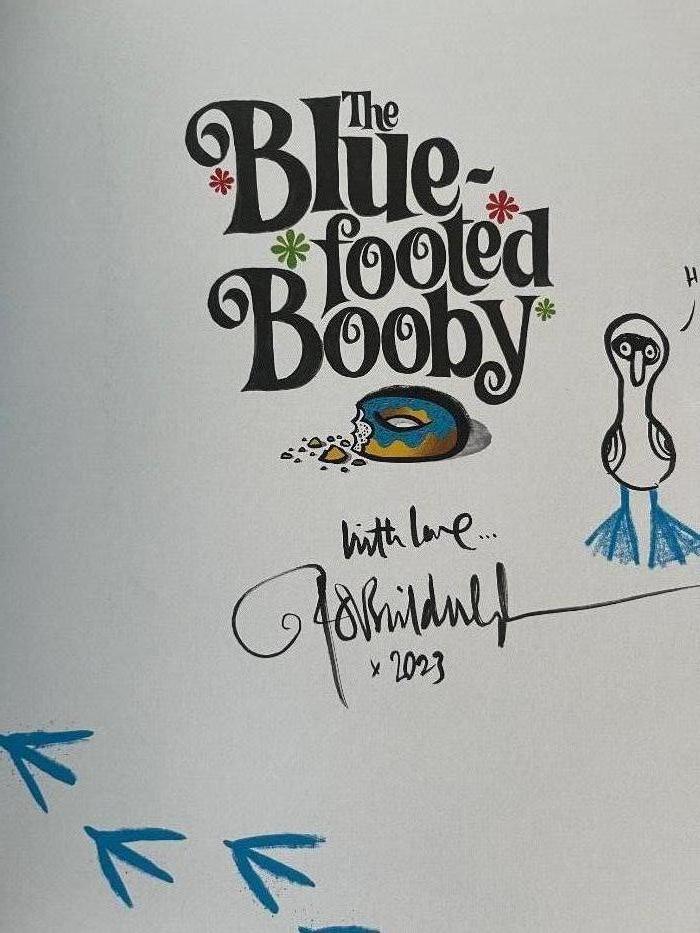 The
Blue-
footed
Booby
H
with love...
x 2023